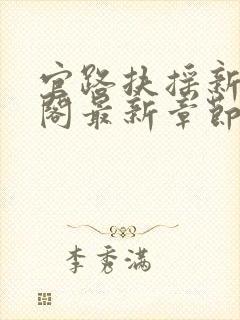 官路扶摇新
阁最新章节
李秀满